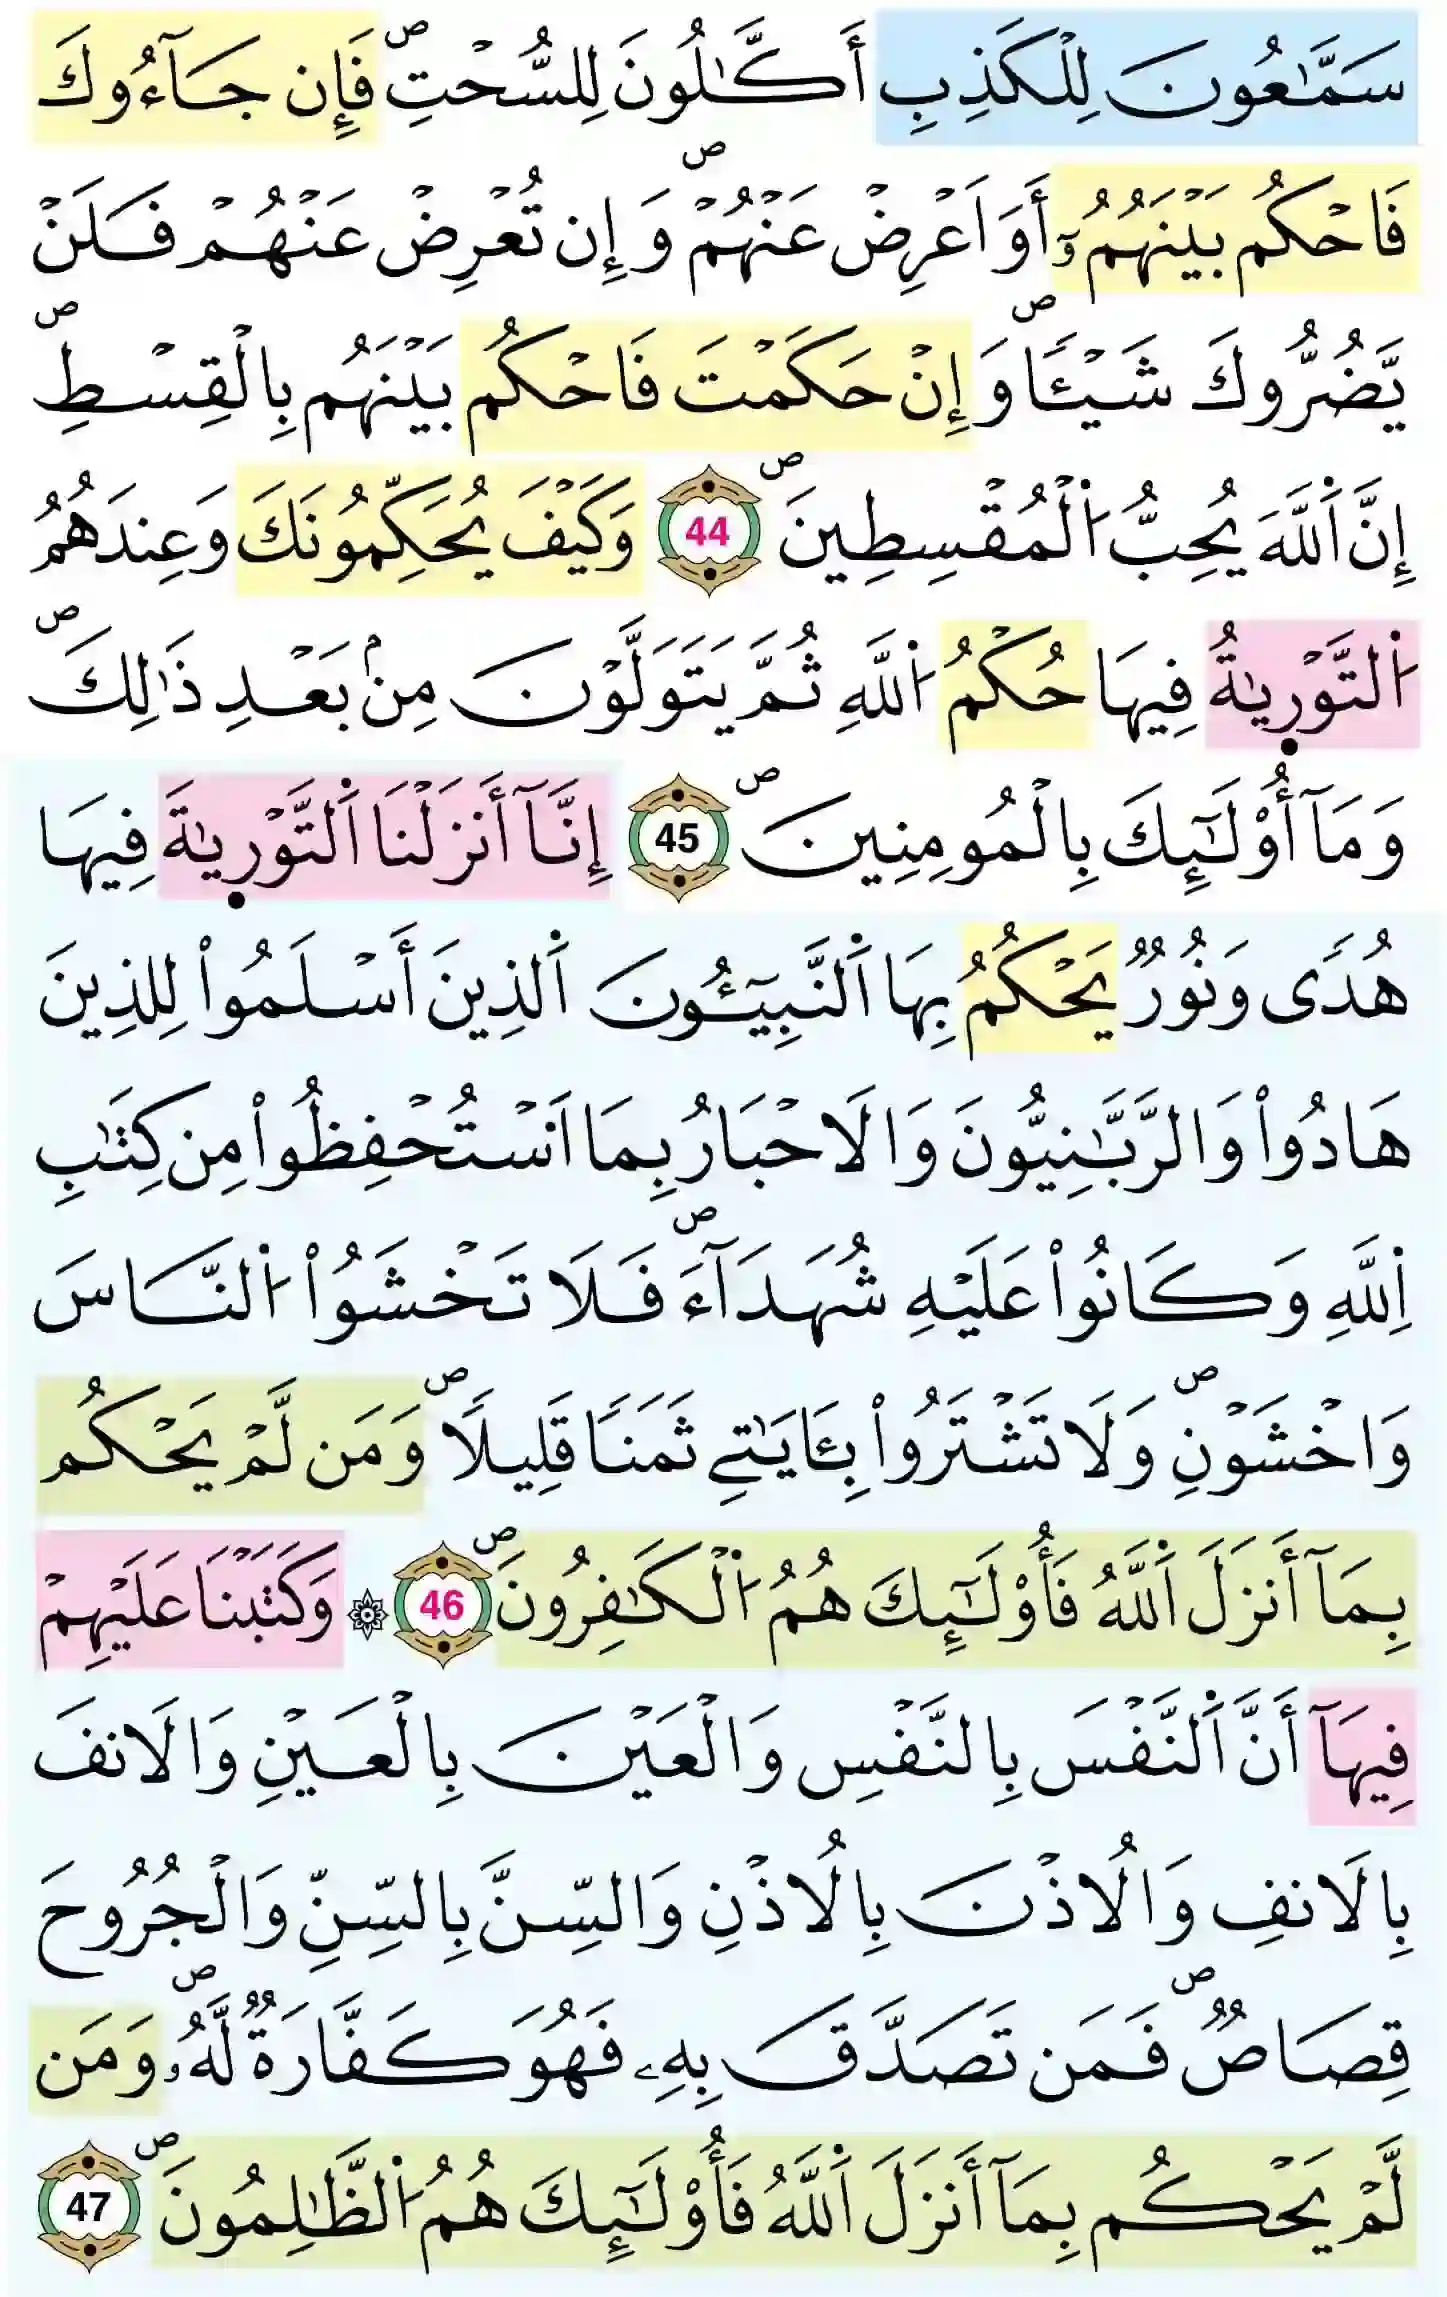 سَمَّٰعُونَ لِلْكَذِبِ أَكَّٰلُونَ لِلسُّحْتِۖ فَإِن جَآءُوكَ
فَاحْكُم بَيْنَهُمُۥٓ أَوَ اَعْرِضْ عَنْهُمْۖ وَإِن تُعْرِضْ عَنْهُمْ فَلَنْ
يَّضُرُّوكَ شَيْـًٔاۖ وَإِنْ حَكَمْتَ فَاحْكُم بَيْنَهُم بِالْقِسْطِۖ
إِنَّ اَ۬للَّهَ يُحِبُّ اُ۬لْمُقْسِطِينَۖ 44 وَكَيْفَ يُحَكِّمُونَكَ وَعِندَهُمُ
اُ۬لتَّوْرٜيٰةُ فِيهَا حُكْمُ اُ۬للَّهِ ثُمَّ يَتَوَلَّوْنَ مِنۢ بَعْدِ ذَٰلِكَۖ
وَمَآ أُوْلَٰٓئِكَ بِالْمُومِنِينَۖ 45 إِنَّآ أَنزَلْنَا اَ۬لتَّوْرٜيٰةَ فِيهَا
هُدًى وَنُورٌ يَحْكُمُ بِهَا اَ۬لنَّبِيٓـُٔونَ اَ۬لذِينَ أَسْلَمُواْ لِلذِينَ
هَادُواْ وَالرَّبَّٰنِيُّونَ وَالَاحْبَارُ بِمَا اَ۟سْتُحْفِظُواْ مِن كِتَٰبِ
اِ۬للَّهِ وَكَانُواْ عَلَيْهِ شُهَدَآءَۖ فَلَا تَخْشَوُاْ اُ۬لنَّاسَ
وَاخْشَوْنِۖ وَلَا تَشْتَرُواْ بِـَٔايَٰتِے ثَمَنًا قَلِيلًاۖ وَمَن لَّمْ يَحْكُم
بِمَآ أَنزَلَ اَ۬للَّهُ فَأُوْلَٰٓئِكَ هُمُ اُ۬لْكَٰفِرُونَۖ 46 ۞ وَكَتَبْنَا عَلَيْهِمْ
فِيهَآ أَنَّ اَ۬لنَّفْسَ بِالنَّفْسِ وَالْعَيْنَ بِالْعَيْنِ وَالَانفَ
بِالَانفِ وَالُاذْنَ بِالُاذْنِ وَالسِّنَّ بِالسِّنِّ وَالْجُرُوحَ
قِصَاصٌۖ فَمَن تَصَدَّقَ بِهِۦ فَهُوَ كَفَّارَةٌ لَّهُۥۖ وَمَن
لَّمْ يَحْكُم بِمَآ أَنزَلَ اَ۬للَّهُ فَأُوْلَٰٓئِكَ هُمُ اُ۬لظَّٰلِمُونَۖ 47